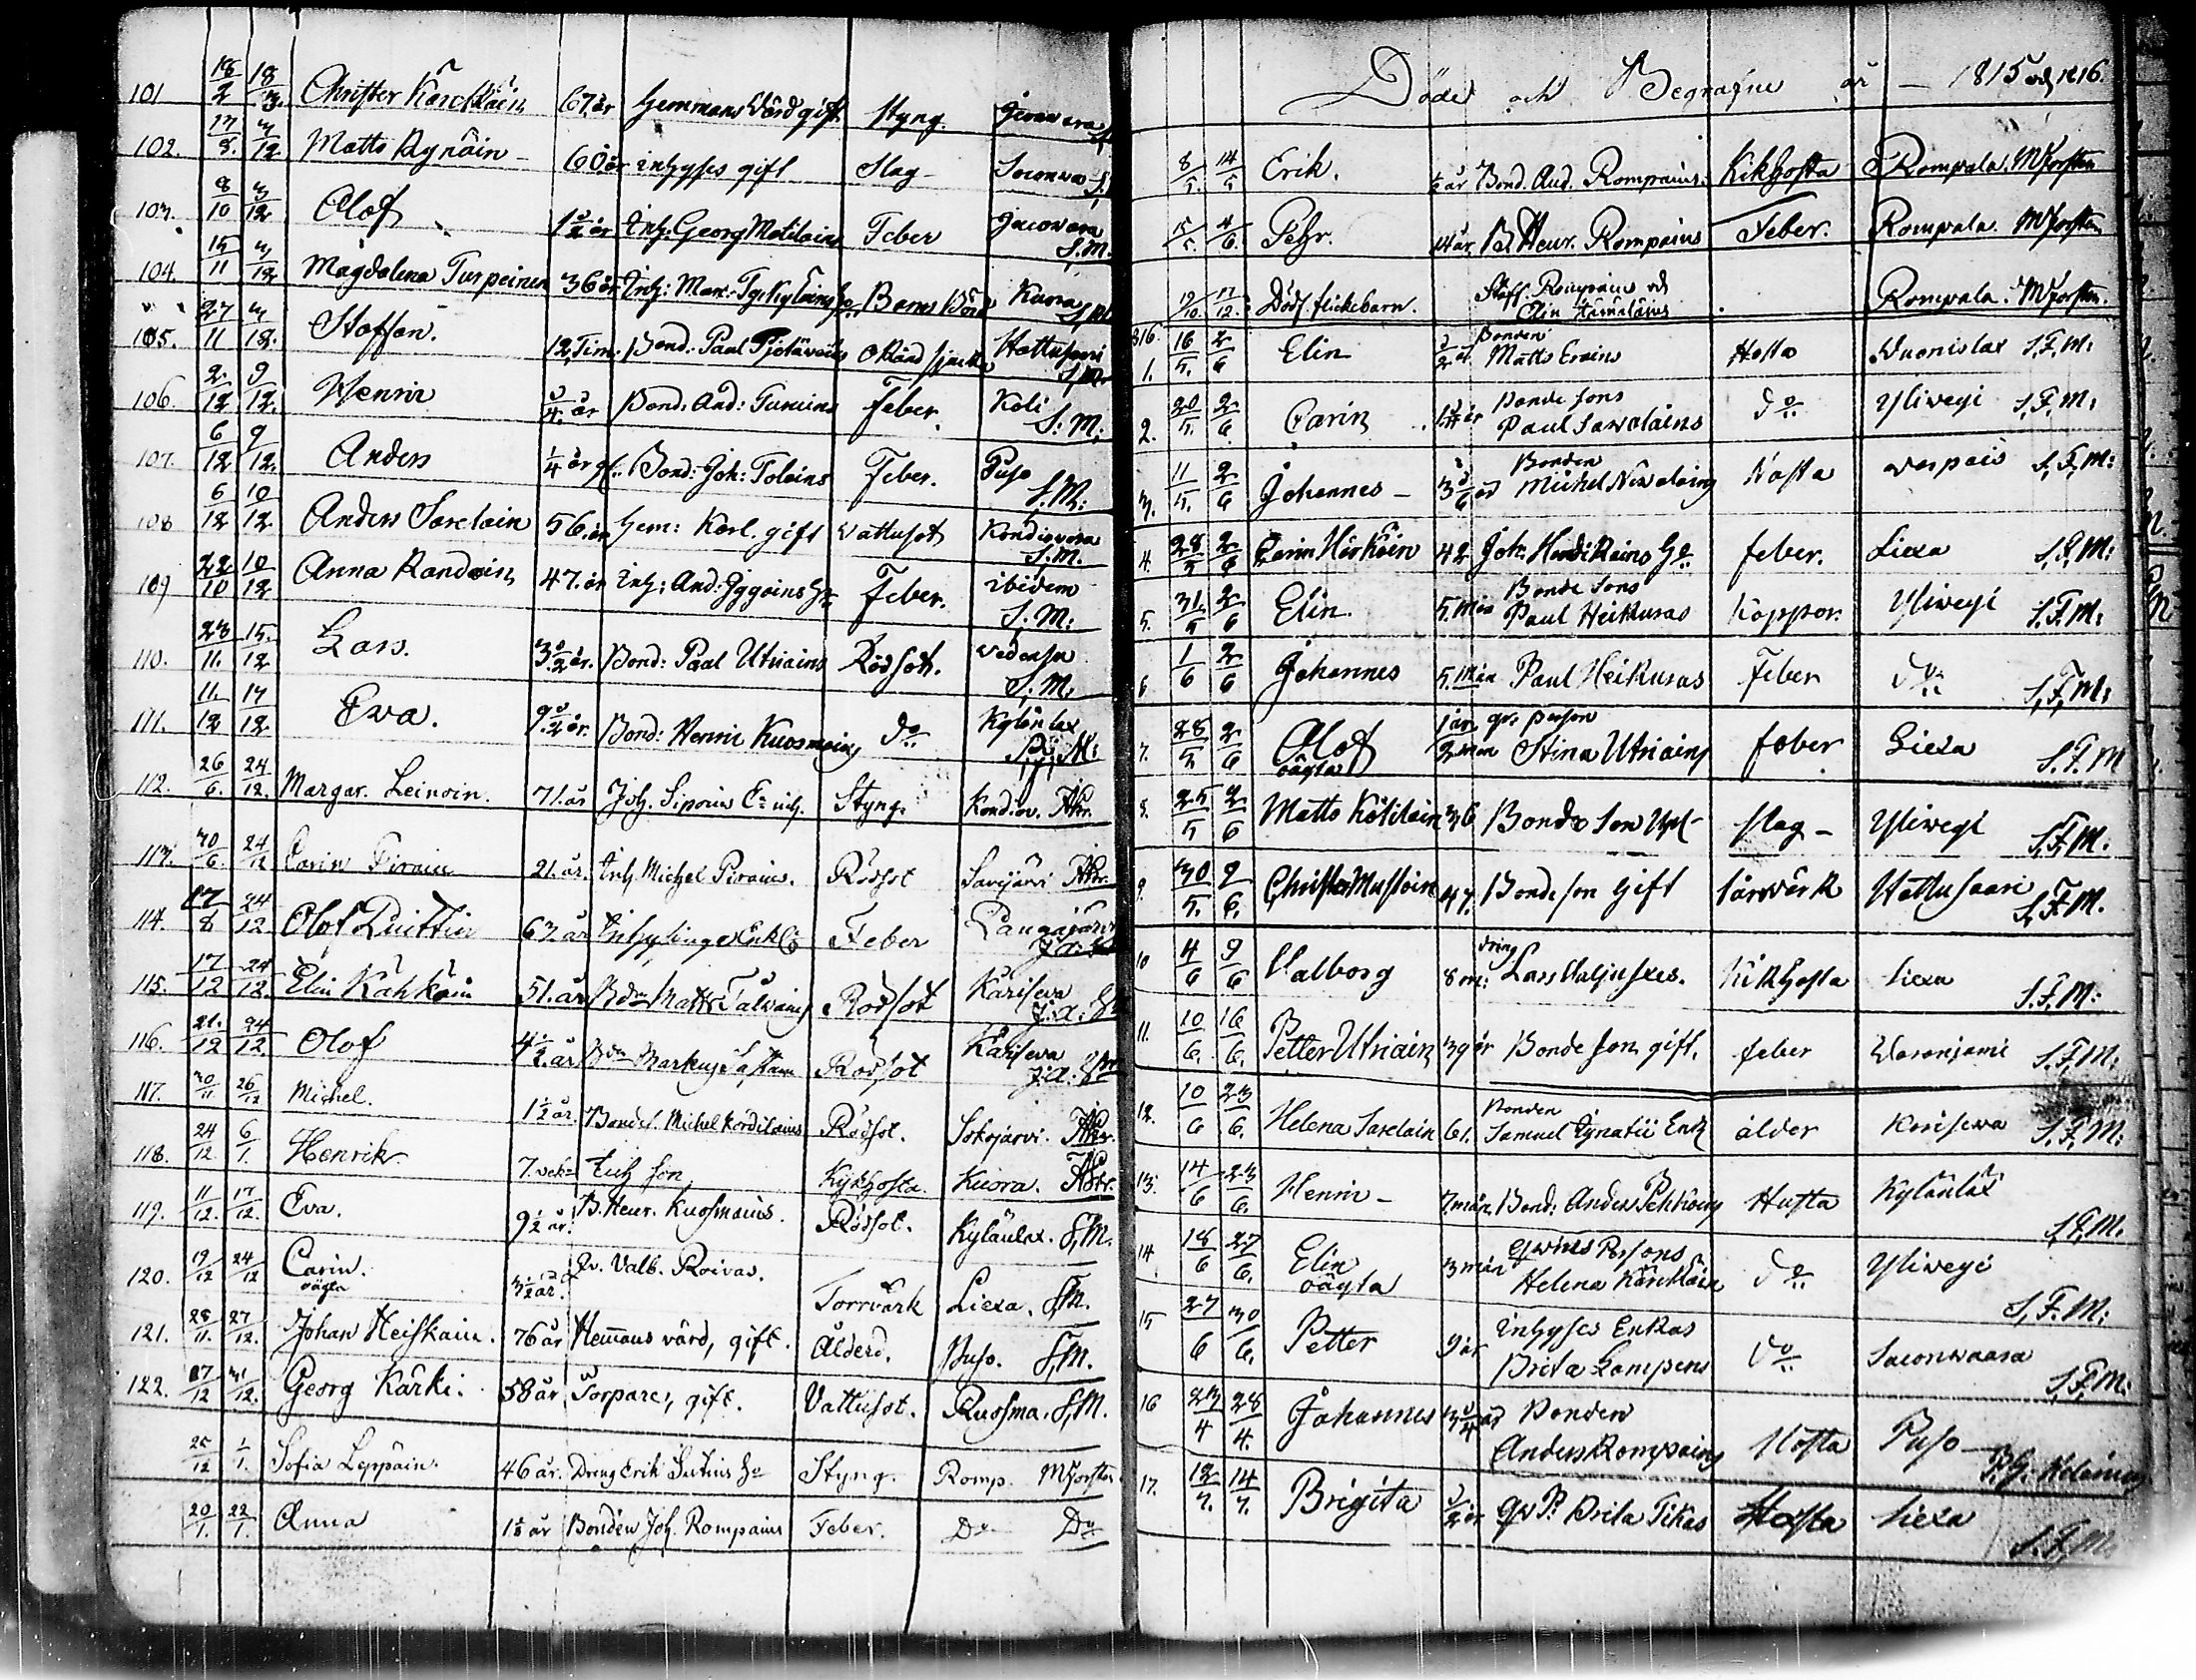 101 18/2 18/3. Christer Kärcköin 67. år Hemmans Wärd gift Styng. Jeronvara
102. 17/8. 3/12 Matts Rynöin 60 år inhyses gift Slag Soconva
103. 8/10 3/12 Olof 1 1/2 år Inh: Georg Motilains Feber Jacovara S.M.
104. 15/11 3/12 Magdalena Turpeinen 36 år Inh: Barns Börd Kuora S.M.
105. 27/11 3/12. Staffan. 12 Tim: Bond: Paul okänd sjuk Hattusari S.M.
106. 2/12 9/12. Henric 3/4. år Bond. And: Turuins Feber. Koli S: M:
107. 6/12 9/12. Anders 1/4 år Bond: Joh: Tolvins Feber. Puso S.M:
108 6/12 10/12 Anders Sorelain 56. år Hem: Karl. gift Wattusot Kondiovara S.M.
109 22/10 10/12 Anna Randoin 47. år Inh: And: Iggoins Feber. ibidem S.M:
110. 23/11. 15./12 Lars. 3. 1/2 år. Bond: Paul Utriains Rödsot. S.M.
111. 11./12 17/12 Eva. 9. 1/2 år. Bond: Henric Kuosmains do Kylänlax S,F,M:
112. 26/6. 24/12. Margar. Leinoin. 71. år Joh. Siporins Enk. inh. Styng. Kondiov. Akr.
113. 30/6. 24/12 Carin Pirain 21. år. Inh Michel Pirains. Rödsot Savijärvi Akr.
114. 17/8 24/12 Olof Quittin 63. år Inhysing Enkl. Feber Pangajärvi
115. 17/12 24/12. Elin Kähköin 51. år Bdn Matts Talvains Rödsot Kariseva
116. 21./12 24/12. Olof 4 1/2 år Bdn Markus Rödsot Kariseva
117. 30/11 26/12 Michel. 1 1/2 år. Bondes. Michel Kordilains Rödsot. Sokojärvi. Akr.
118. 24/12. 6/1. Henrik 7. vek: Inh son Kikhosta. Kuora. Akr.
119. 11/12. 17/12. Eva. 9 1/2 år. B. Henr. Kuosmains. Rödsot. Kylänlax. S,M.
120. 19/12 24/12 Carin. oägta 3 1/2 år. Qv. Valb. Roivas. Torrvärk Liexa. S,M.
121. 28/11. 27/12. Johan Heiskain. 76 år Hemans värd, gift. Ålderd. Puso. S,M.
122. 27/12 31/12. Georg Kärki. 58 år Torpare, gift. Vattusot. Ruosma. S,M.
25/12 1/1. Sofia Leppäin. 46 år. Dreng Erik Sutius Ho Styng. Romp. MForsten.
20/1. 22/1. Anna 1 1/2 år Bonden Joh. Rompains Feber. Do Do
Döde och Begrafne år — 1815 och 1816.
8/5. 14/5 Erik. 1/2 år Bond. And. Rompains. Kikhosta Rompala. MForsten
15/5. 4/6. Pehr. 14 år B. Henr. Rompains Feber. Rompala. MForsten
19/10. 17/12. Dödf. flickebarn. Staff Rompain och Elin Hämäläins Rompala. MForsten.
816.
1. 16/5. 2/6 Elin 1/2 år Bonden Matts Ervins Hosta Wuonislax S.F.M:
2. 20/5. 2/6 Carin 1 3/4 år Bonde sons Paul Sawolains do Yliwegi S,F,M:
3. 11/5. 2/6 Johannes 3 år Bonden Michel Newalains Hosta Wespais S,F,M:
4. 28/5 2/6 Carin Hirköin 42 Joh: Ho feber. Liexa S,F,M:
5. 31/5 2/6 Elin 5. mån Bonde Sons Paul Heikuras Koppor. Yliwegi S.F.M:
6 1/6 2/6 Johannes 5. mån Paul Heikuras Feber do S,F,M:
7. 28/5 2/6 Olof oägta 1 år 2 mån qv. person Stina Utriains feber Liexa S.F.M
8. 25/5 2/6 Matts Kötilain 36 Bonde Son slag Yliwegi S,F,M.
9. 30/5. 9/6. Christer Mustoin 47. Bonde son gift Hattusaari S,F.M.
10 4/6 9/6 Walborg 8 m: dreng Lars kikhosta Liexa S.F.M:
11. 10/6. 16/6. Petter Utriain 39 år Bonde son gift. feber Woronjemi S,F,M:
12. 10/6 23/6. Helena Sarelain 61. Bonden Samuel Ignatii Enk ålder Koriseva S.F,M:
13. 14/6 23/6. Henric 7. mån. Bond: Anders Pehkoins Hosta Kylänlax S,F,M.
14 18/6 27/6. Elin oägta 3 mån qwins Persons Helena Kärcköin do Yliwegi S,F.M:
15 27/6 30/6. Petter 9 år inhyses Enkas Brita Lampens do Soconwaara S,F,M:
16 23/4 28/4. Johannes 3 3/4 år Bonden Anders Rompains Hosta Puso
17. 12/7. 14/7. Brigita 1/2 år qv P: Brita Tikas Hosta Liexa S.F,M: